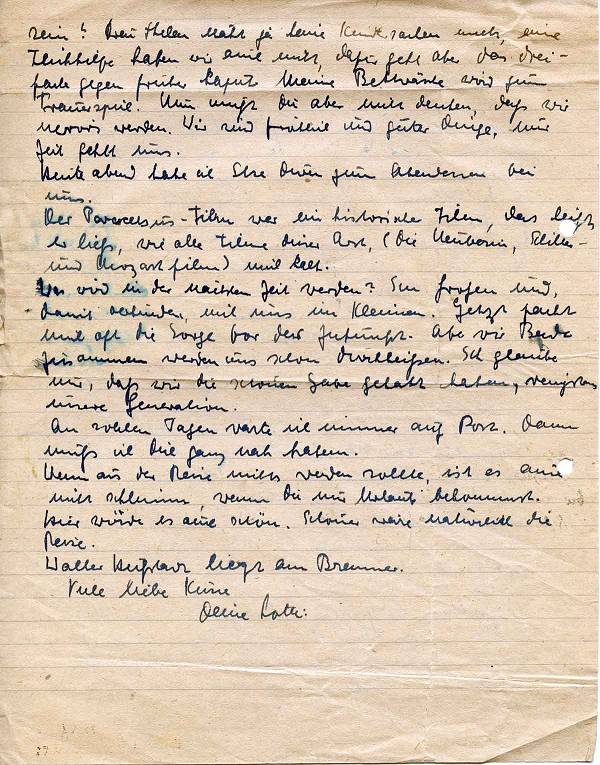 sein? Frau Thelen näht ja keine Kindersachen mehr, eine
haben wir auch nicht, dafür geht aber das drei-
fache gegen früher kaput. Meine Bettwäsche wird zum
Trauerspiel. Nun mußt du aber nicht denken, daß wir
nervös werden. Wir sind fröhlich und guter Dinge, nur
Zeit fehlt uns.
Heute abend habe ich Else zum Abendessen bei
uns.
Der Paracelsus-Film war ein historischer Film, das heißt
er ließ, wie alle Filme dieser Art, (die Neuberin, Schiller-
und Mozartfilm) mich kalt.
Was wird in der nächsten Zeit werden? Im Großen und,
damit verbunden, mit uns im Kleinen. Jetzt packt
mich oft die Sorge vor der Zukunft. Aber wir Beide
zusammen werden uns schon durchbeißen. Ich glaube
nur, daß wir die schönen Jahre gehabt haben, wenigstens
unsere Generation.
An solchen Tagen warte ich immer auf Post. Dann
muß ich Dich ganz nah haben.
Wenn aus der Reise nichts werden sollte, ist es auch
nicht schlimm, wenn Du nur Urlaub bekommst.
Hier würde es auch schön. Schöner wäre natürlich die
Reise.
Walter liegt am Brenner.
Viele liebe Küsse
Deine Lotte.